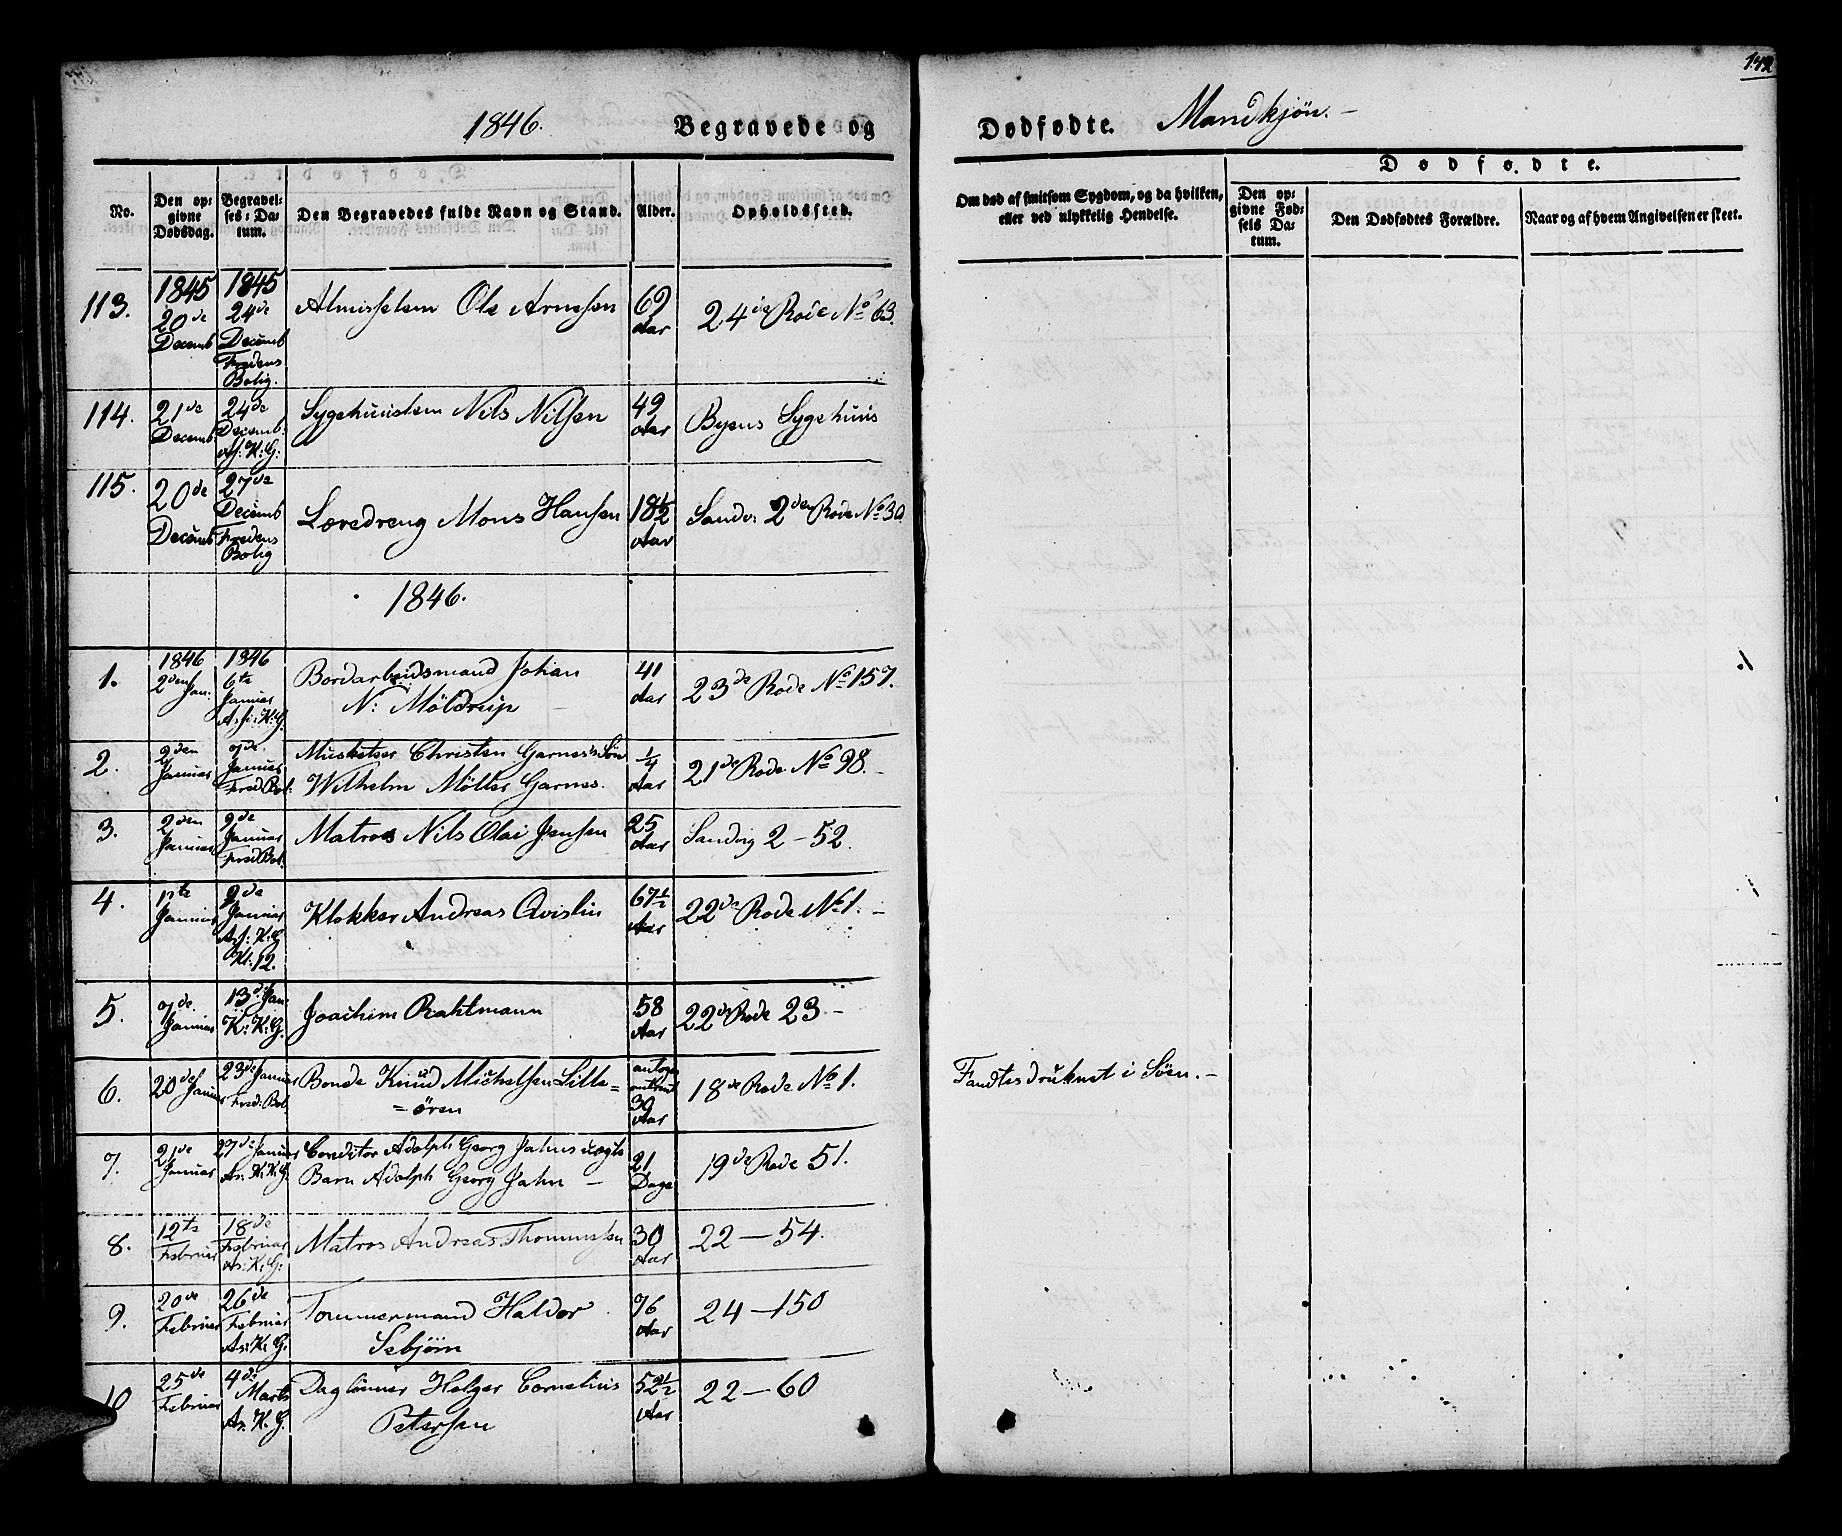 142
1846. Begravede og Dødfødte. Mandkjøn. –
No.
Den opgivne Dødsdag.
Begravelses-Datum.
Den Begravedes fulde Navn og Stand.
Alder.
Opholdssted.
Om død af smitsom Sygdom, og da hvilken, eller ved ulykkelig Hendelse.
Dødfødte.
Den opgivne Fødsels Datum.
Den Dødfødtes Forældre.
Naar og af hvem Angivelsen er skeet.
113. 1845 20de Decemb 1845 24de Decemb Fredens Bolig. Almisselem Ole Arnesen 69 Aar 24de Rode No 63.
114. 21de Decemb. 24de Decemb: As: K: G: Sygehuuslem Nils Nilsen 49 Aar Byens Sygehuus
115. 20de Decemb 27de Decemb Fredens Bolig Læredreng Mons Hansen 18½ Aar Sandv: 2den Rode No 30.
1846.
1. 1846 2den Jan: 1846 6te Januar As: K: G. Bordarbeidsmand Johan
N: Möldrup 41 Aar 23de Rode No 157.
2. 2den Januar 7de Januar Fred Bol: Musketeer Christen Garnes's Søn
Wilhelm Møller Garnes. ¼ Aar 21de Rode No 98. –
3. 2den Januar 9de Januar Fred Bol. Matros Nils Olai Jensen 25 Aar Sandvig 2 – 52.
4. 1te Januar 9de Januar As: K: G Kl: 12. Klokker Andreas Qvislin 67½ Aar 22de Rode No 1. –
5. 7de Januar 13de Jan: K: K: G. Joachim Rahtmann 58 Aar 22de Rode 23 –
6. 20de Januar 23de Januar Fred: Bol. Bonde Knud Michelsen Lille=
=ören 30 Aar 18de Rode No 1. Fandtes druknet i Søen. –
7. 21de Januar 27de Januar As. K: G. Conditor Adolph Georg Jahns uægte
Barn Adolph Georg Jahn – 21 Dage 19de Rode 51.
8. 12te Februar 18de Februar As: K: G: Matros Andreas Thommesen 30 Aar 22 – 54.
9. 20de Februar 26de Februar As: K: G. Tømmermand Haldor
Sebjörn 76 Aar 24 – 150
10 25de Februar 4de Marts As. K. G. Daglönner Holger Cornelius
Petersen 52½ Aar 22 – 60